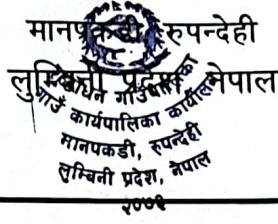 मानपकडी, रुपन्देही
लुम्बिनी प्रदेश, नेपाल
गाउँ कार्यपालिका कार्यालय
मानपकडी, रुपन्देही
लुम्बिनी प्रदेश, नेपाल
२०७३